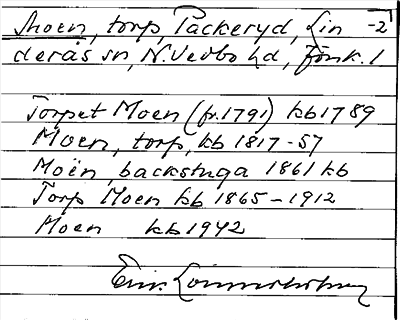 Moen, torp, Packeryd, Lin -2
deräs sn, N. Vedbo hd, Jönk. l
Torpet Moen (fr. 1791) kb 1789
Moen, torp, kb 1817-57
Moën, backstuga 1861 kb
Torp Moen kb 1865-1912
Moen kb 1942
Erik